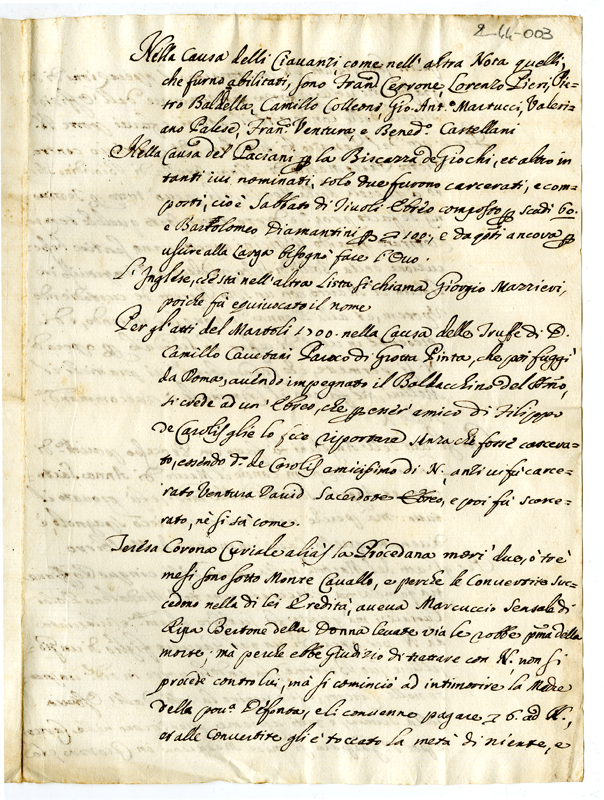 2-44-003
Nella Causa delli Ciavanzi, come nell' altra Nota quelli,
che furno abilitati, sono Fran.co Cerrone, Lorenzo Pieri, Pie=
tro Baldella, Camillo Colleoni, Gio: Ant.o Martucci, Valeri=
ano Palese, Fran.co Ventura, e Bened.o Castellani
Nella Causa del Paciani la Biscazza de Giochi, et altro in
tanti ivi nominati, solo due furono carcerati, e com=
posti, cioè Sabbato di Tivoli Ebreo composto scudi 60.
e Bartolomeo Diamantini 100:, e da q.sti ancora
usure alla larga bisognò fare l'Duo.
L'Inglese, che stà nell' altra Lista si chiama Giorgio Mazzieri,
poiche fù equivocato il nome
Per gl'atti del Martoli 1700. nella Causa delle Truffe di D.
Camillo Paroco di Grotta Pinta, che poi fuggì
da Roma, avendo impegnato il Baldacchino del
si crede ad un' Ebreo, che amico di Filippo
de Carolis glie lo fece riportare senza che forse carcera=
to, essendo d.o de Carolis amicissimo di N. anzi vi fù carce=
rato Ventura David Sacerdote Ebreo, e poi fù scarce=
rato, nè si sà come.
Teresa Corona Curiale alias la Procedana morì due, ò trè
mesi sono sotto Monte Cavallo, e perche le Convertite suc=
cedono nella di lei Eredità, aveva Marcuccio Sensale di
Ripa Bertone della Donna levate via le robbe p.ma della
morte, mà perche ebbe giudizio di trattare con N. non si
procedè contro lui, mà si cominciò ad intimorire la Madre
della pov.a Defonta, e li convenne pagare 6. ad N.,
et alle Convertite gli è toccato la metà di niente, e